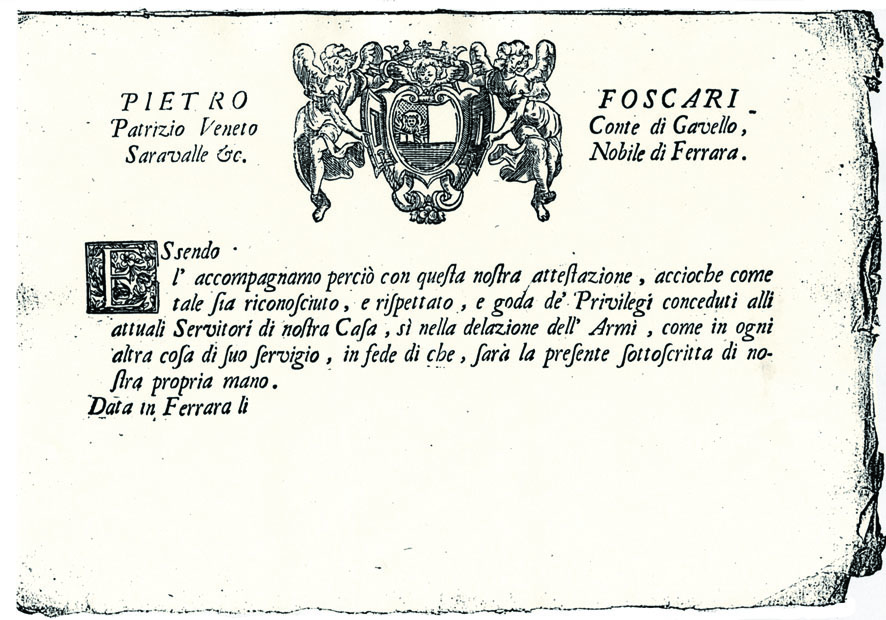 PIETRO FOSCARI
Patrizio Veneto Conte di Gavello,
Saravalle &c. Nobile di Ferrara.
ESsendo
l' accompagnamo perciò con queſta noſtra atteſtazione, accioche come
tale ſia riconoſciuto, e riſpettato, e goda de' Privilegi conceduti alli
attuali Servitori di noſtra Caſa, sì nella delazione dell' Armi, come in ogni
altra coſa di ſuo ſervigio, in fede di che, ſarà la preſente ſottoſcritta di no-
ſtra propria mano.
Data in Ferrara li